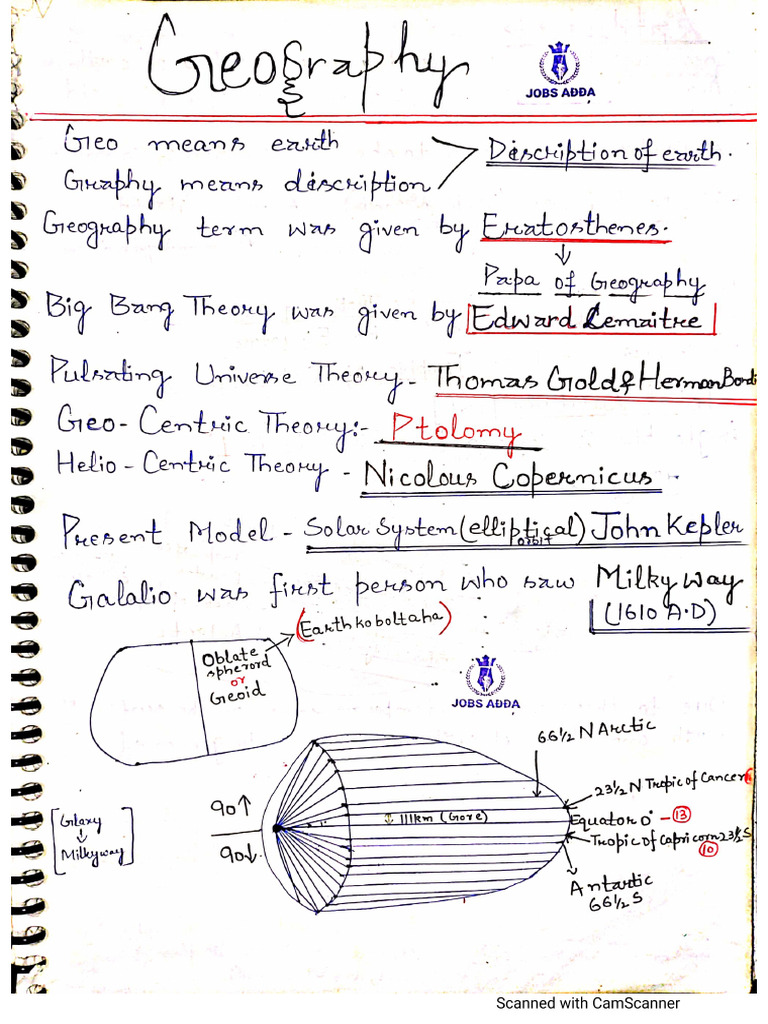 Geography
JOBS ADDA
Geo means earth
Graphy means discription
Discription of earth.
Geography term was given by Eratosthenes.
Papa of Geography
Big Bang Theory was given by Edward Lemaitre
Pulsating Universe Theory - Thomas Gold & Herman Bondi
Geo-Centric Theory:- Ptolomy
Helio-Centric Theory - Nicolous Copernicus
Present Model - Solar System (elliptical) John Kepler
orbit
Galalio was first person who saw Milky way
(1610 A.D)
(Earth ko boltaha)
Oblate
spheroid
or
Geoid
JOBS ADDA
66 1/2 N Arctic
23 1/2 N Tropic of Cancer
90↑
111km (Gore)
Equator 0° - 13
Glaxy
↓
Milkyway
90↓
Tropic of Capricorn 23 1/2 S
10
Antartic
66 1/2 S
Scanned with CamScanner